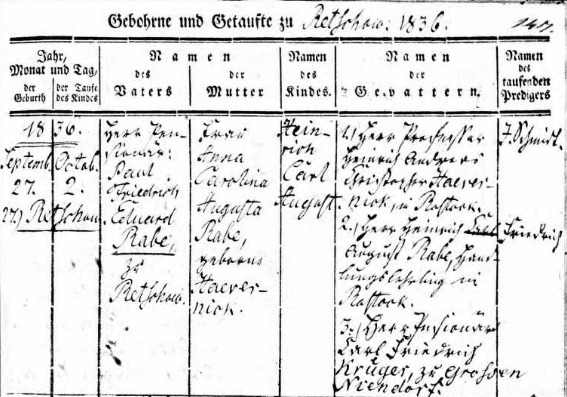 Gebohrne und Getaufte zu Retschow. 1836.
Jahr, Monat und Tag,
der Geburth
der Taufe des Kindes
Namen des Vaters
Namen der Mutter
Namen des Kindes.
Namen der Gevattern.
Namen des taufenden Predigers
1836.
Septemb.
27.
Octob.
2.
27) Retschow
Herr Pen-
sionär:
Paul
Friedrich
Eduard
Rabe,
zu
Retschow.
Frau
Anna
Carolina
Augusta
Rabe,
geborne
Haever-
nick.
Hein-
rich
Carl
August
1.) Herr Professer
Heinrich Andreas
Christopher Haever-
nick, in Rostock.
2.) Herr Heinrich
August Rabe, Hand-
lungslehrling in
Rostock.
3.) Herr Pensionär
Carl Friedrich
Krüger, zu Grossen
Niendorf.
J. Schmidt.
Friedrich